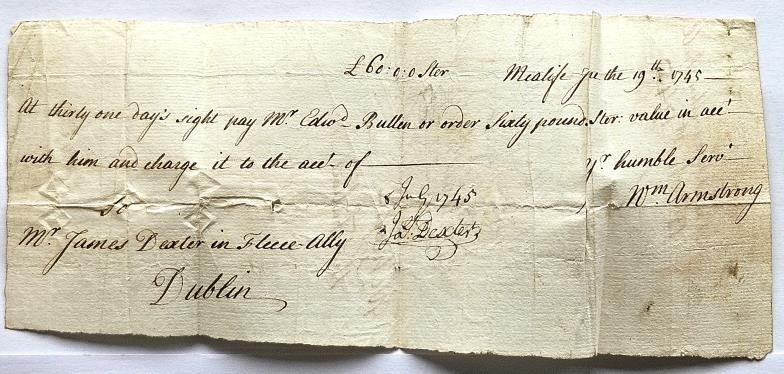 £60:0:0 Ster Mealife Jue the 19th. 1745
At thirty one day's sight pay Mr. Edwd. Bullen or order Sixty pound Ster: value in acct
with him and charge it to the acct. of
yr. humble Servt
8 July 1745
Wm Armstrong
To
Jas: Dexter
Mr. James Dexter in Fleece-Ally
Dublin